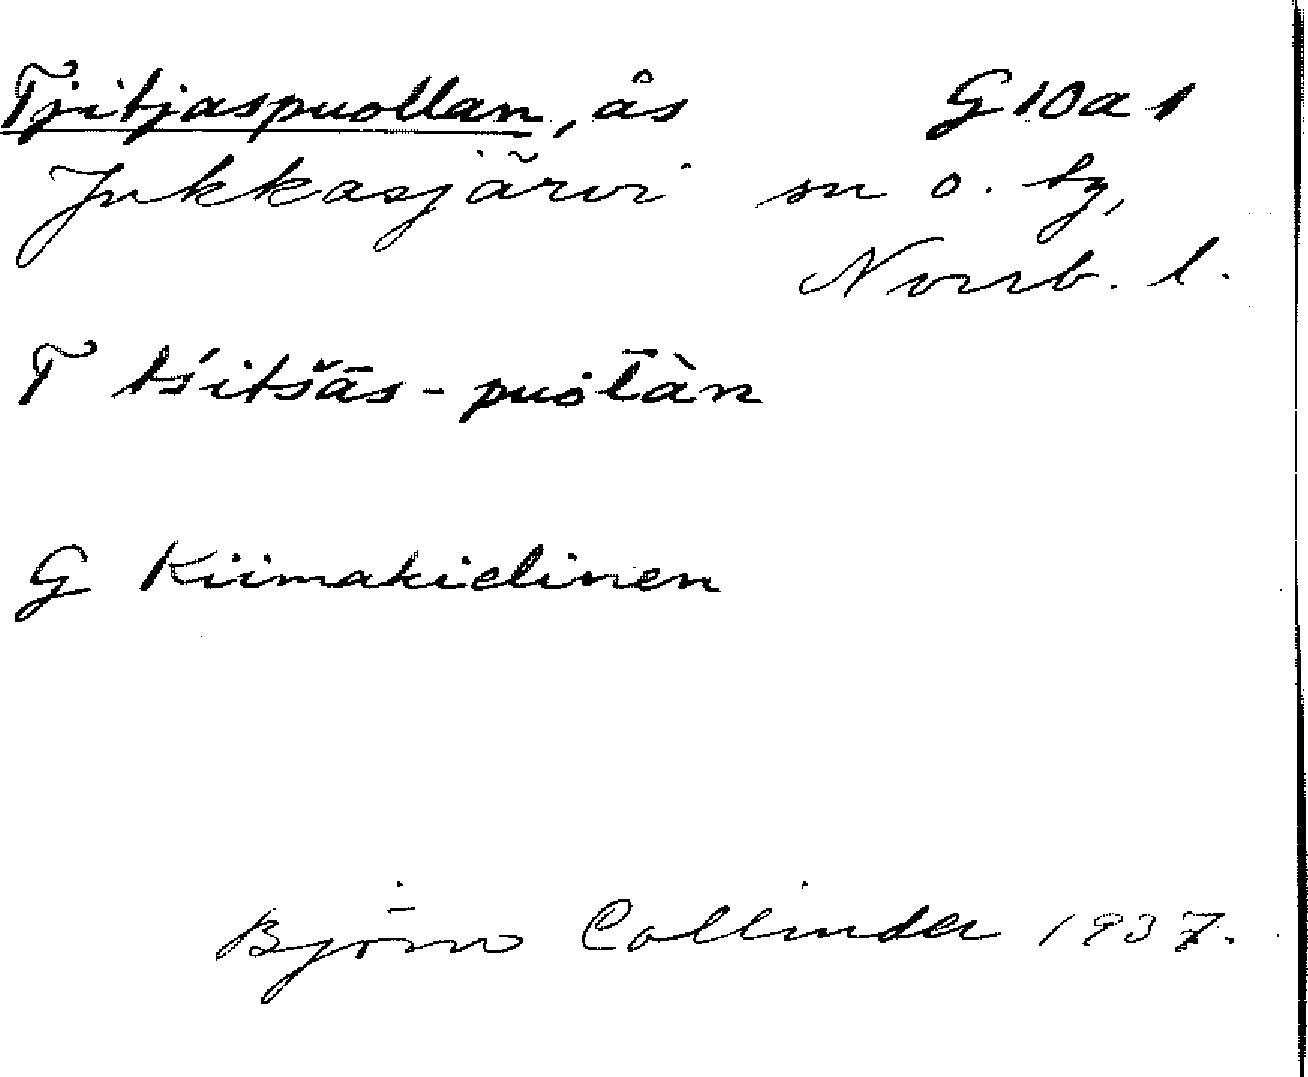 Tjitjaspuollan, ås G10a1
Jukkasjärvi sn o. tg,
Norrb. l.
T tśitšās-puo̯l̄àn
G Kiimakielinen
Björn Collinder 1937.